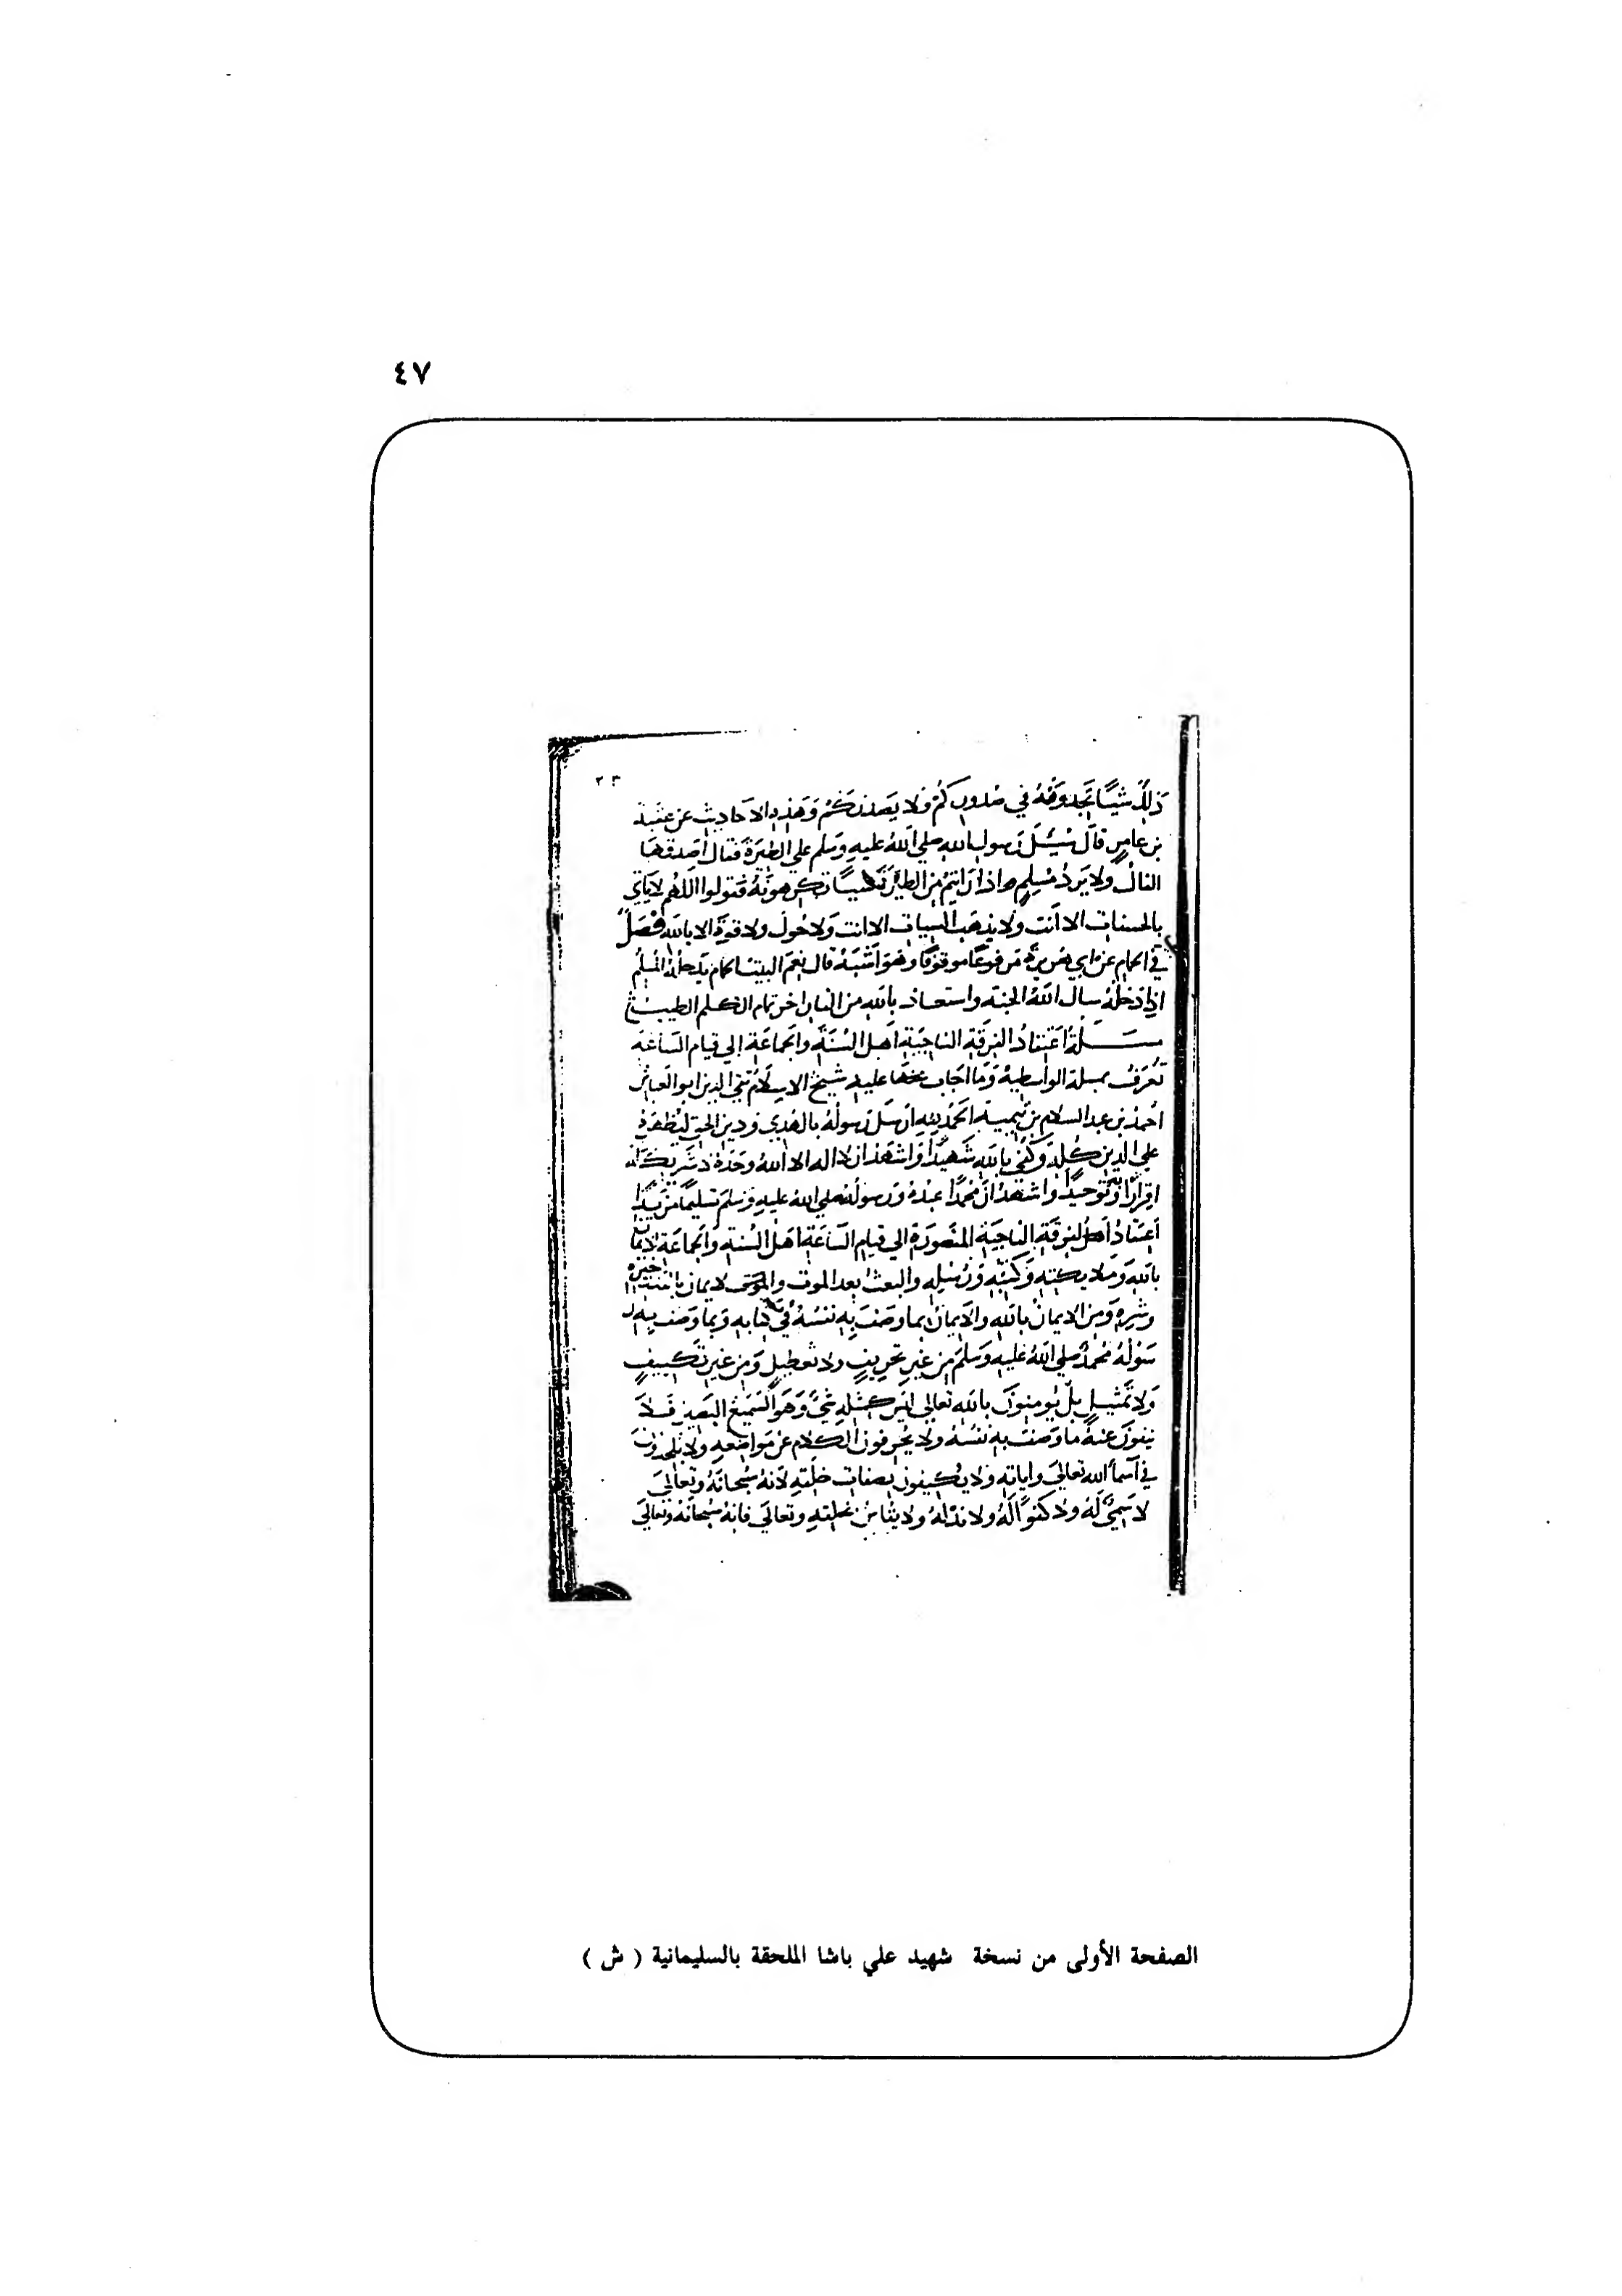 ٤٧
٢٣
ذلك شيئا تجدونه في صدوركم فلا يصدنكم وهذه الاحاديث عن عقبة
بن عامر قال سئل رسول الله صلي الله عليه وسلم علي الطيرة فقال اصدقها
الفال ولا يرد مسلم واذا رايتم من الطير شيئا تكرهونه فقولوا اللهم لا ياتي
بالحسنات الا انت ولا يذهب السيات الا انت ولا حول ولا قوة الا بالله فصل
في الحمام عن ابي هريرة مرفوعا موقوفا وهو اشبه قال نعم البيت الحمام يدخله المسلم
اذا دخله سال الله الجنة واستعاذ بالله من النار اخر تمام الكلم الطيب
مسلة اعتقاد الفرقة الناجية اهل السنة والجماعة الي قيام الساعة
تعرف بمسلة الواسطية ومما اجاب عليه شيخ الاسلام تقي الدين ابو العباس
احمد بن عبد السلام بن تيمية الحمد لله ارسل رسوله بالهدي ودين الحق ليظهره
علي الدين كله وكفي بالله شهيدا واشهد ان لا اله الا الله وحده لا شريك له
اقرارا به وتوحيدا واشهد ان محمدا عبده ورسوله صلي الله عليه وسلم تسليما مزيدا
اعتقاد اهل الفرقة الناجية المنصورة الي قيام الساعة اهل السنة والجماعة الايمان
بالله وملايكته وكتبه ورسله والبعث بعد الموت والايمان بالقدر خيره
وشره ومن الايمان بالله والايمان بما وصف به نفسه في كتابه وبما وصف به ر
سوله محمد صلي الله عليه وسلم من غير تحريف ولا تعطيل ومن غير تكييف
ولا تمثيل بل يومنون بالله تعالي ليس كمثله شي وهو السميع البصير فلا
ينفون عنه ما وصف به نفسه ولا يحرفون الكلام عن مواضعه ولا يلحدون
في اسما الله تعالي واياته ولا يكيفون صفات خلقه لانه سبحانه وتعالي
لا سمي له ولا كفوا له ولا ند له ولا يقاس بخلقه وتعالي فانه سبحانه وتعالي
الصفحة الأولى من نسخة شهيد علي باشا الملحقة بالسليمانية ( ش )